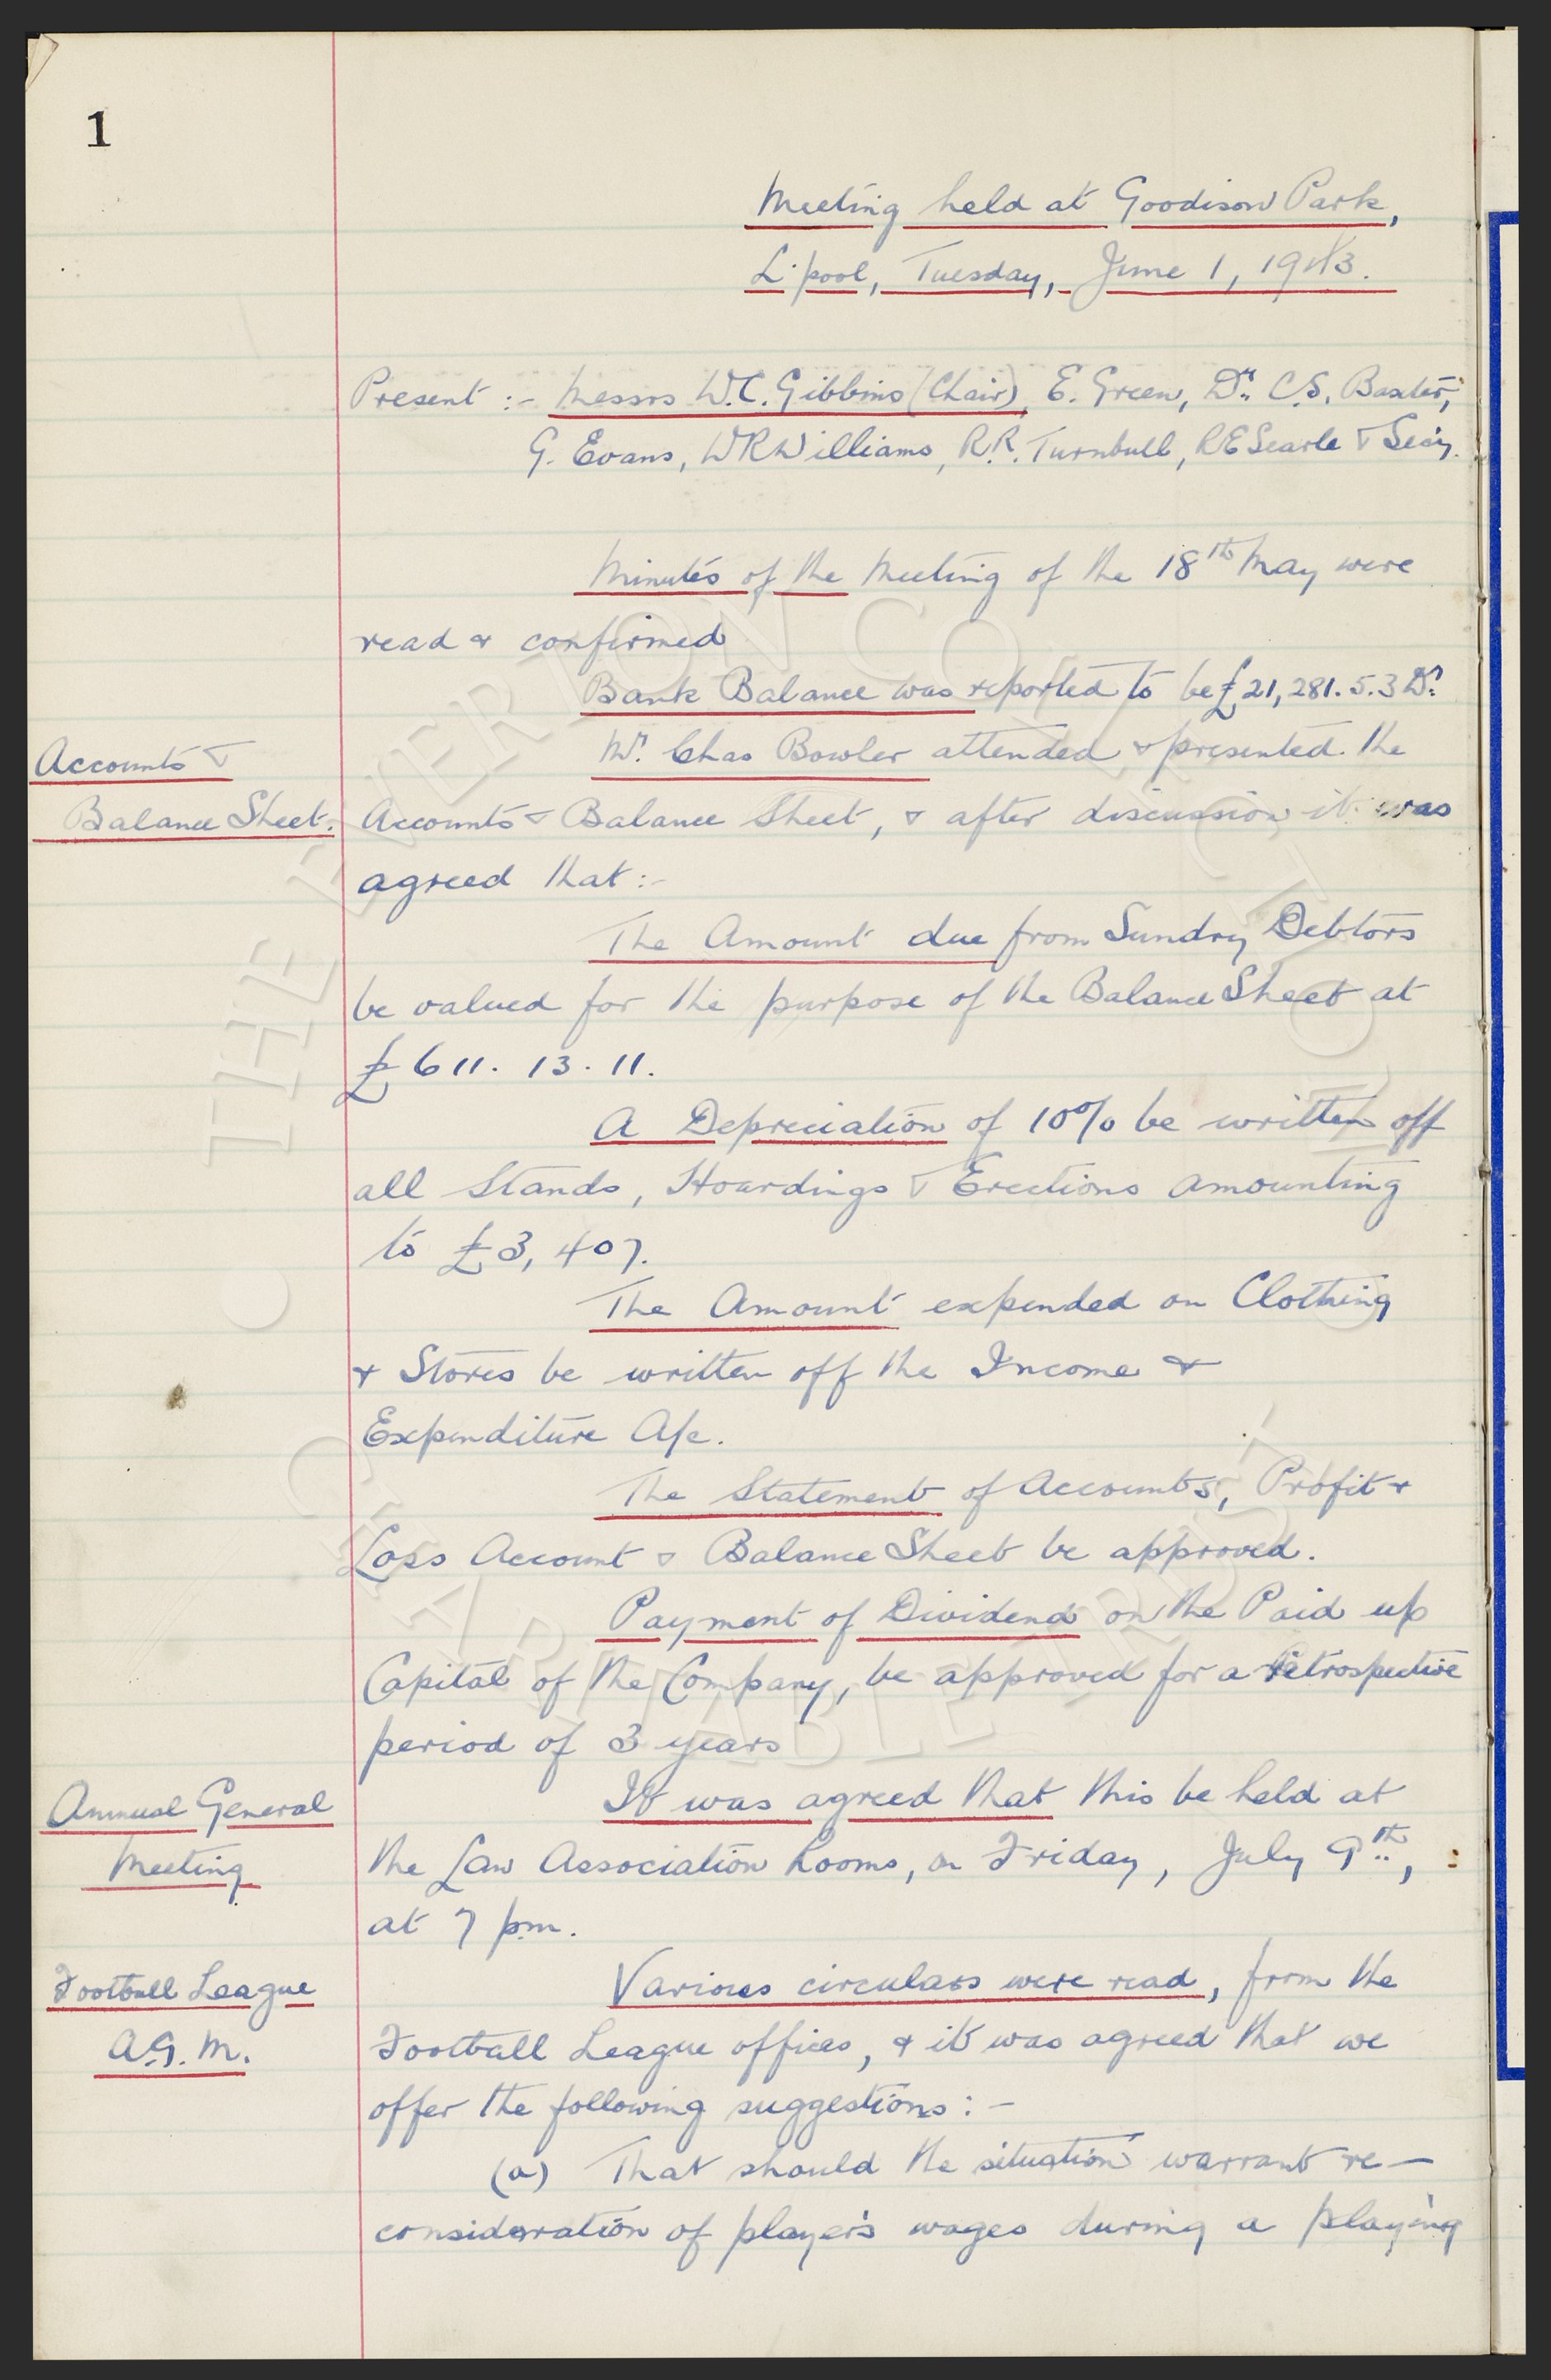 1
Meeting held at Goodison Park,
L'pool, Tuesday, June 1, 1943.
Present :- Messrs W.C. Gibbins (Chair), E. Green, Dr. C.S. Baxter,
G. Evans, W R Williams, R.R. Turnbull, R E Searle & Sec'y.
Minutes of the Meeting of the 18th May were
read & confirmed
Bank Balance was reported to be £21,281.5.3 Dr.
Accounts &
Mr. Chas Bowler attended & presented the
Balance Sheet.
Accounts & Balance Sheet, & after discussion it was
agreed that :-
The Amount due from Sundry Debtors
be valued for the purpose of the Balance Sheet at
£611. 13. 11.
A Depreciation of 10% be written off
all Stands, Hoardings & Erections amounting
to £3,407.
The Amount expended on Clothing
& Stores be written off the Income &
Expenditure A/c.
The Statement of Accounts, Profit &
Loss Account & Balance Sheet be approved.
Payment of Dividend on the Paid up
Capital of the Company, be approved for a retrospective
period of 3 years
Annual General
It was agreed that this be held at
Meeting
the Law Association Rooms, on Friday, July 9th,
at 7 p.m.
Football League
Various circulars were read, from the
A.G.M.
Football League offices, & it was agreed that we
offer the following suggestions :-
(a) That should the situation warrant re-
consideration of player's wages during a playing
THE EVERTON COLLECTION
CHARITABLE TRUST